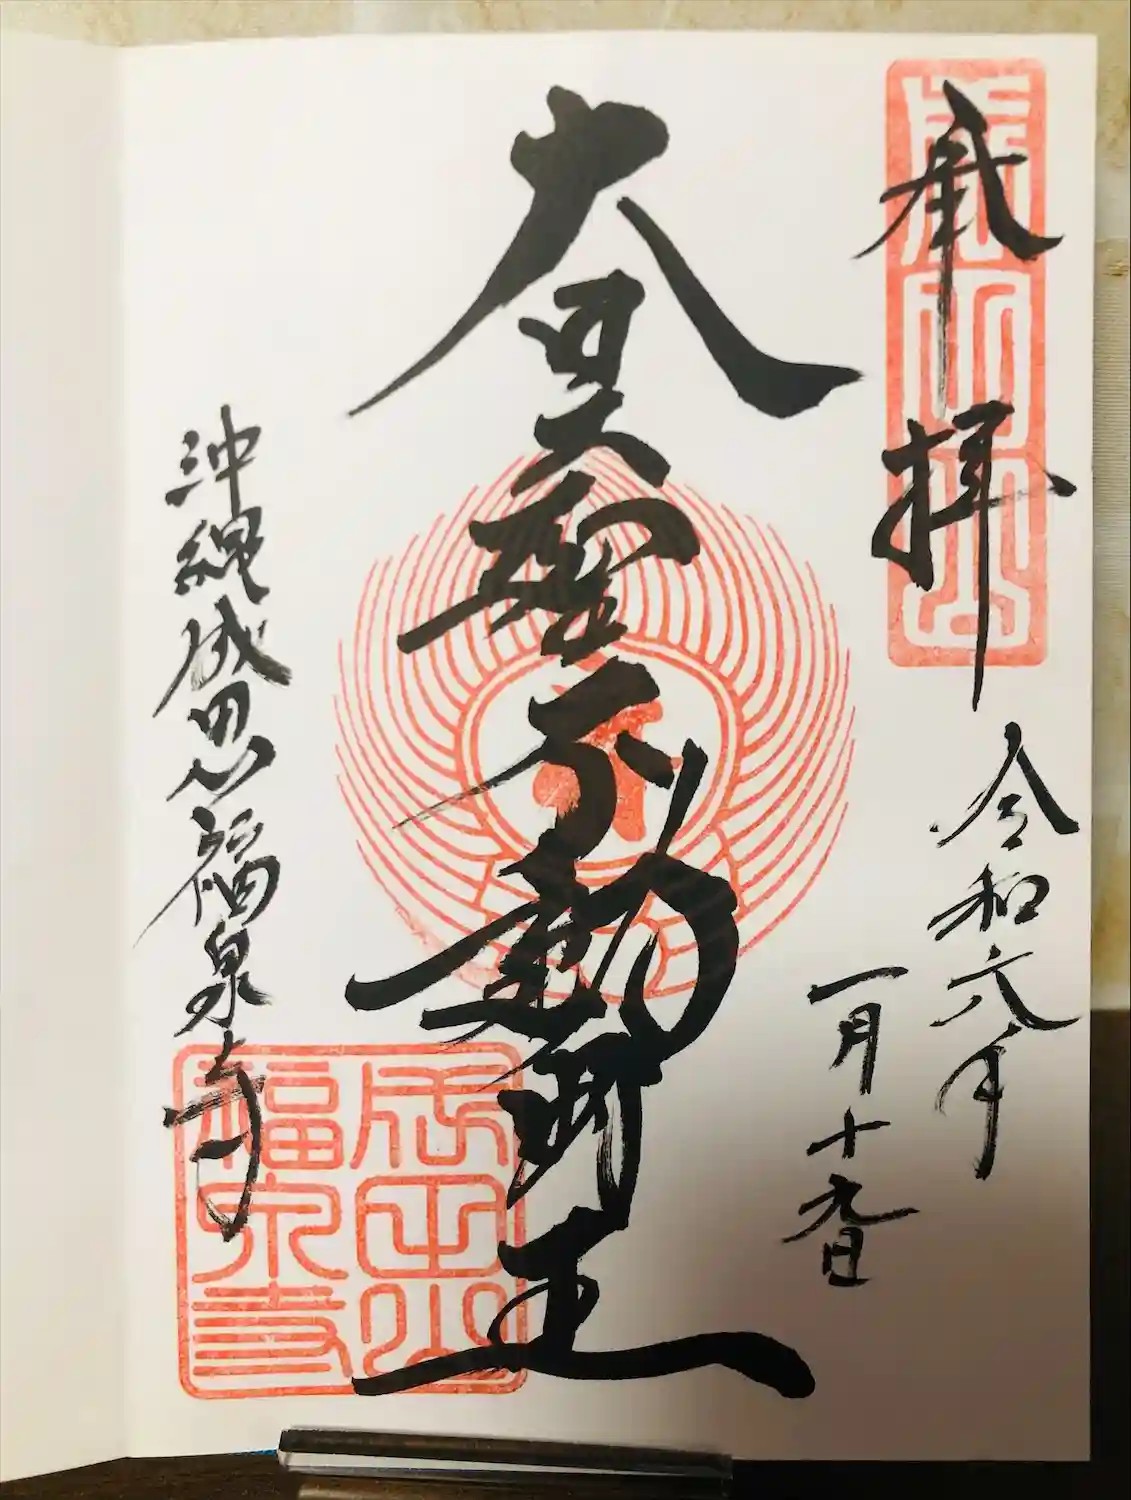 成田山
奉拝
令和六年
一月十九日
大日大聖不動明王
沖縄成田山福泉寺
成田山
福泉寺